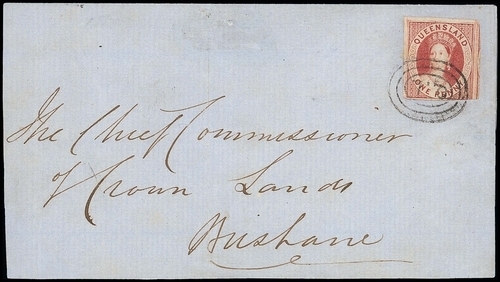 QUEENSLAND
ONE PENNY
The Chief Commissioner
of Crown Lands
Brisbane